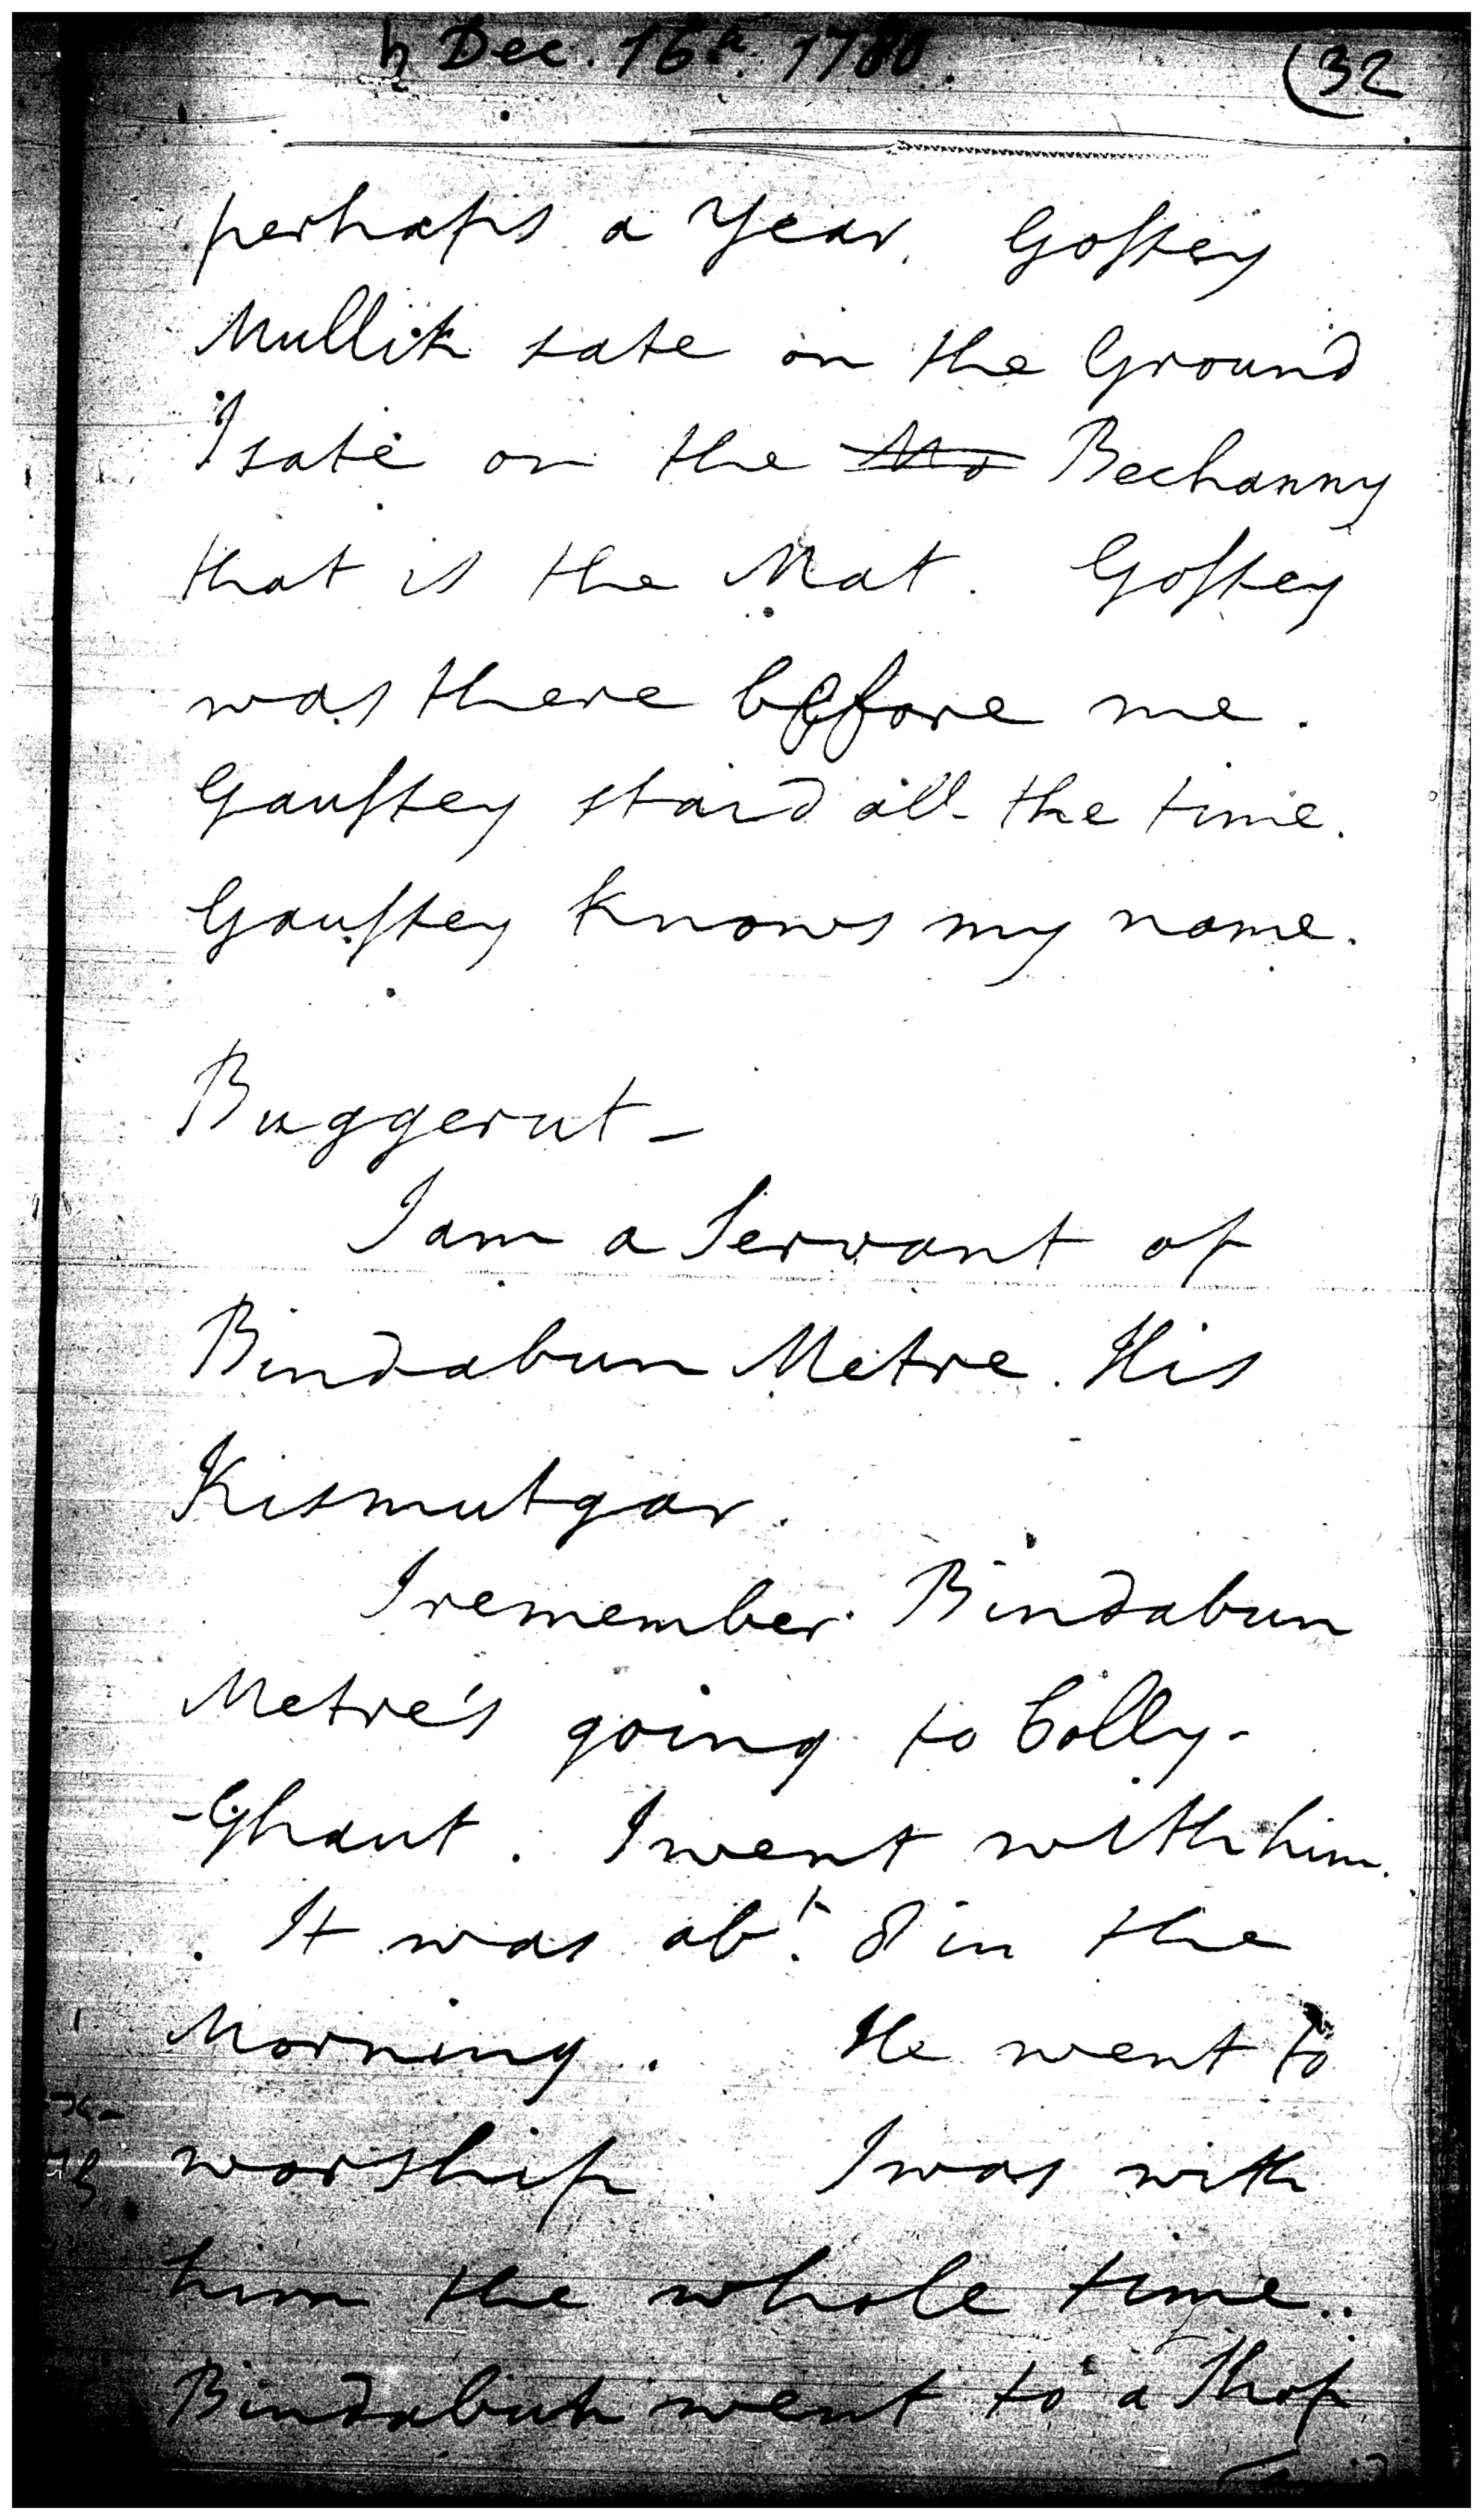 ♄ Dec. 16th. 1780. (32
perhaps a Year. Gosſtey
Mullik sate on the Ground
I sate on the Mo Bechanny
that is the Mat. Gosſtey
was there before me.
Gauſtey staid all the time.
Gauſtey knows my name.
Buggerut –
I am a Servant of
Bindabun Metre. His
Kismutgar.
I remember Bindabun
Metre's going to Colly-
-Ghaut. I went with him.
It was abt. 8 in the
Morning. He went to
worship. I was with
him the whole time.
Bindabun went to a Shop